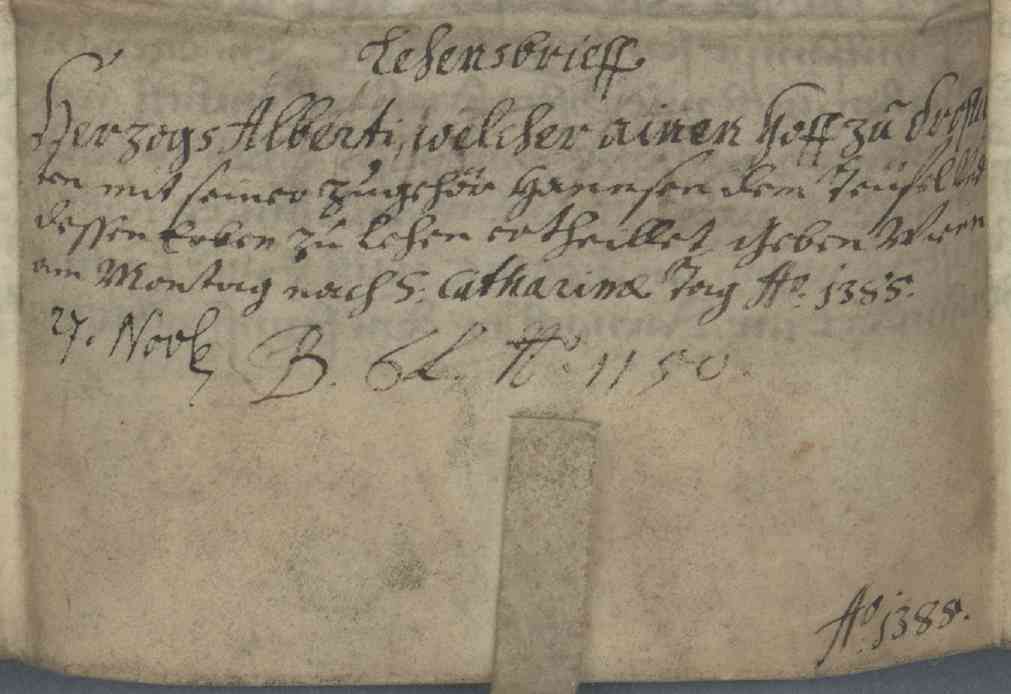 Lehensbrieff
Herzogs Alberti, welcher ainen Hoff zu
ten mit seiner zugehör Hannsen dem Teufel und
dessen Erben zu Lehen ertheillet geben Wien
am Montag nach S. Catharinæ Tag Aō. 1385.
27. Novb B. 62. No. 1150.
Aō. 1385.